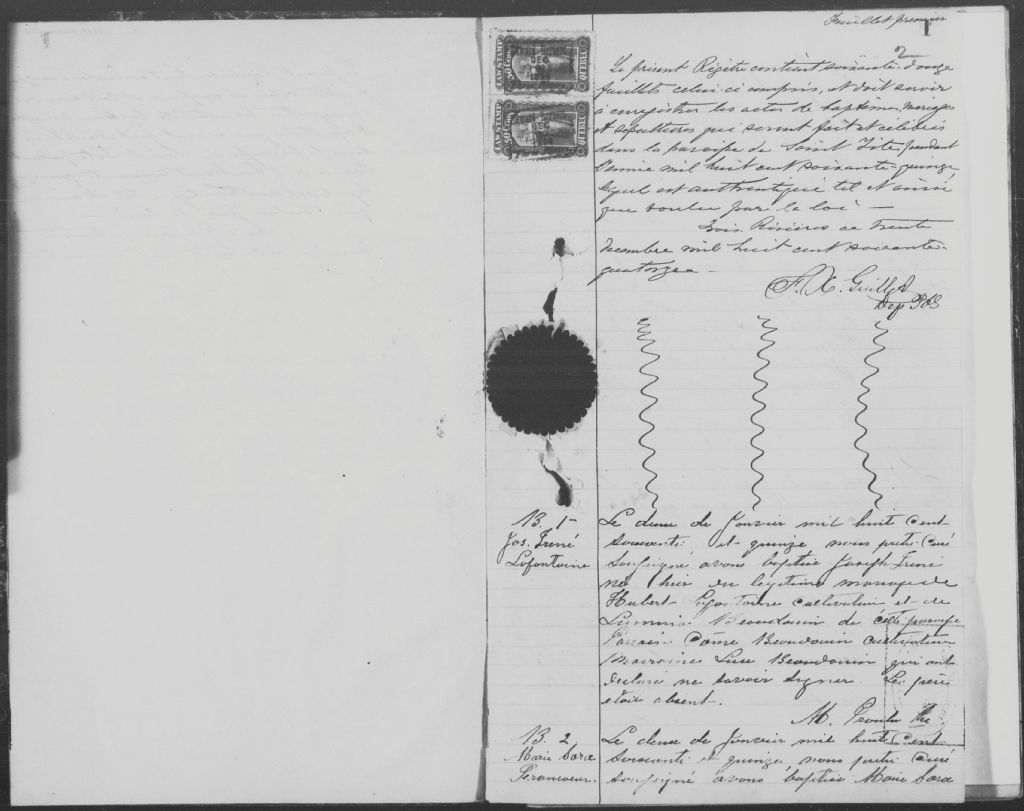 Feuillet premier
1
2
LAW STAMP
QUEBEC
LAW STAMP
QUEBEC
Le présent Régistre contient soixante-douze
feuillets celui ci compris, et doit servir
à enregistrer les actes de baptêmes, mariages
et sépultures qui seront fait et célébrés
dans la paroisse de Saint Tite, pendant
l'année mil huit cent soixante-quinze,
lequel est authentiqué tel et ainsi
que voulu par la loi —
Trois Rivières ce trente
décembre mil huit cent soixante-
quatorze —
F. X. Guillet
Dep
B. 1-
Jos. Irené
Lafontaine
Le deux de Janvier mil huit cent
soixante et quinze nous prêtre Curé
soussigné avons baptisé Joseph Irené
né hier du légitime mariage de
Hubert Lafontaine cultivateur et de
Beaudouin de cette paroisse
Parrain Côme Beaudouin cultivateur
Marraine Luce Beaudouin qui ont
déclaré ne savoir signer. Le père
était absent.
M. Proulx Ptre
B. 2
Marie Sara
Le deux de Janvier mil huit cent
soixante et quinze nous prêtre Curé
soussigné avons baptisé Marie Sara